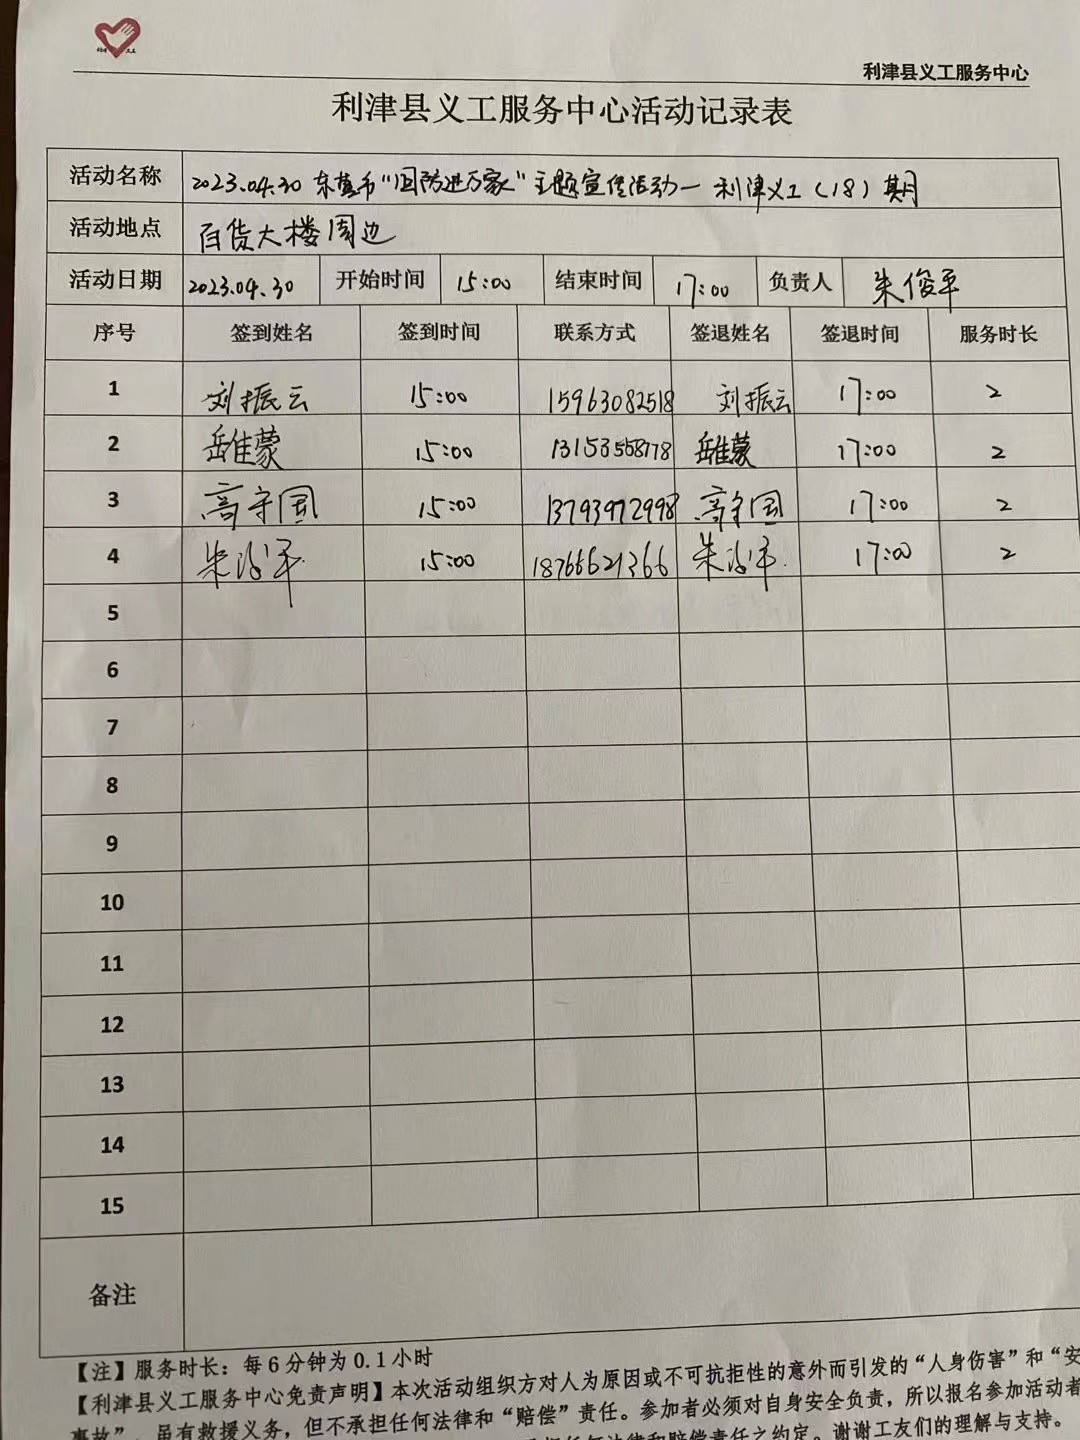 利津县义工服务中心
利津县义工服务中心活动记录表
活动名称 2023.04.30 东营市“国防进万家”主题宣传活动—利津义工（18）期
活动地点 百货大楼周边
活动日期 2023.04.30 开始时间 15:00 结束时间 17:00 负责人 朱俊平
序号 签到姓名 签到时间 联系方式 签退姓名 签退时间 服务时长
1 刘振云 15:00 15963082518 刘振云 17:00 2
2 岳佳蒙 15:00 13153558778 岳佳蒙 17:00 2
3 高守国 15:00 13793972998 高守国 17:00 2
4 朱俊平 15:00 18766621366 朱俊平 17:00 2
5
6
7
8
9
10
11
12
13
14
15
备注
【注】服务时长：每6分钟为0.1小时
【利津县义工服务中心免责声明】本次活动组织方对人为原因或不可抗拒性的意外而引发的“人身伤害”和“安
事故”，虽有救援义务，但不承担任何法律和“赔偿”责任。参加者必须对自身安全负责，所以报名参加活动者
任何法律和赔偿责任之约定。谢谢工友们的理解与支持。